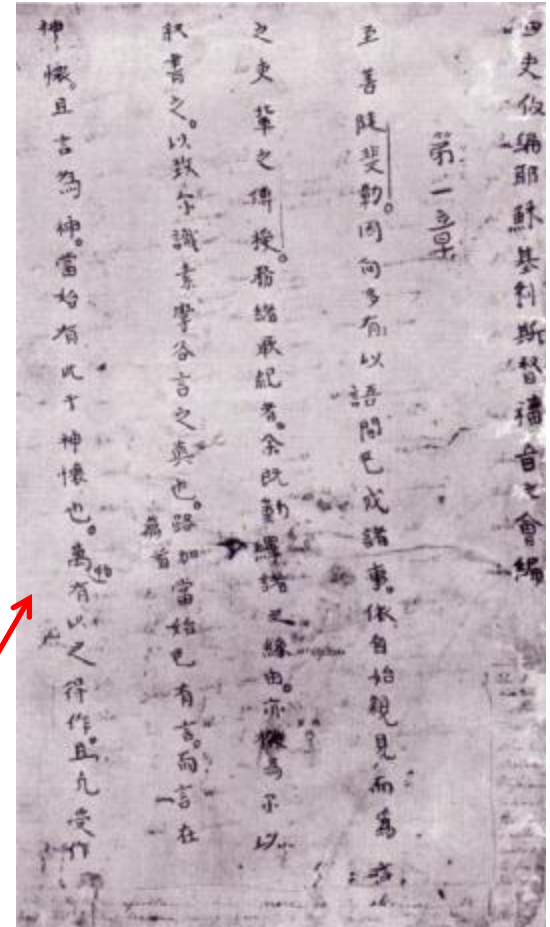 四史攸編耶穌基利斯督福音之會編
第一章
至善陡斐勒。因向多有以語問已成諸事。依自始親見而為
之吏輩之傳授。務緒厥紀者。余既勤繹諸之緣由。亦為尓以
秩書之。以致尔識素學各言之真也。路加當始已有言。而言在
神懷。且言為神。當始有此于神懷也。萬有以之得作。且凡受作